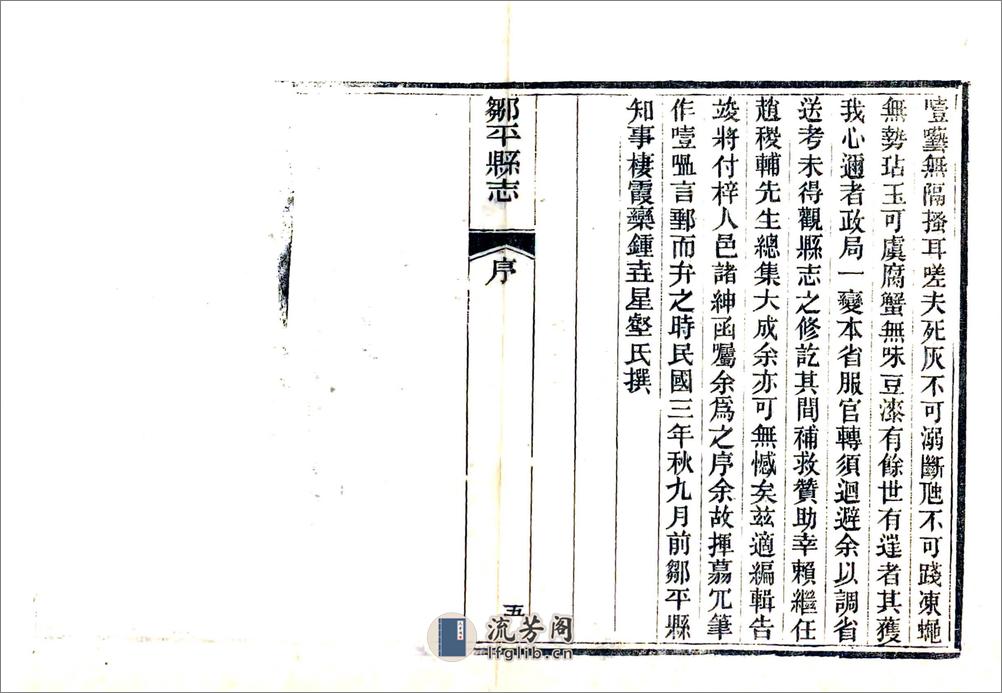 噎藝無隔搔耳嗟夫死灰不可溺斷虺不可踐凍蠅
無勢玷玉可虞腐蟹無味豆漆有餘世有達者其獲
我心邇者政局一變本省服官轉須迴避余以調省
送考未得觀縣志之修訖其間補救贊助幸賴繼任
趙稷輔先生總集大成余亦可無憾矣茲適編輯告
竣將付梓人邑諸紳函囑余爲之序余故揮蒭冗筆
作噎嗢言郵而弁之時民國三年秋九月前鄒平縣
知事棲霞欒鍾垚星壑氏撰
鄒平縣志
序
五
流芳阁
lfglib.cn